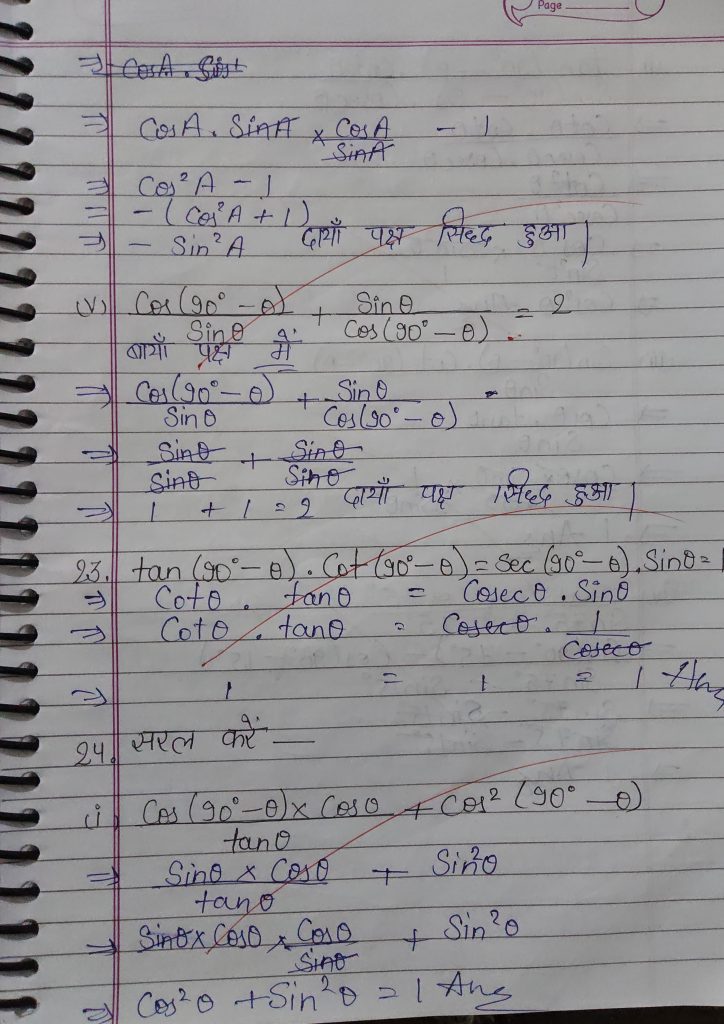 Page
⇒ CosA . Sin
⇒ CosA . SinA × CosA/SinA - 1
⇒ Cos²A - 1
= - (Cos²A + 1)
⇒ - Sin²A दायाँ पक्ष सिद्ध हुआ |
(v) Cos(90° - θ)/Sinθ + Sinθ/Cos(90° - θ) = 2
बायाँ पक्ष में
⇒ Cos(90° - θ)/Sinθ + Sinθ/Cos(90° - θ)
⇒ Sinθ/Sinθ + Sinθ/Sinθ
⇒ 1 + 1 = 2 दायाँ पक्ष सिद्ध हुआ |
23. tan(90° - θ) . Cot(90° - θ) = Sec(90° - θ) . Sinθ = 1
⇒ Cotθ . tanθ = Cosecθ . Sinθ
⇒ Cotθ . tanθ = Cosecθ . 1/Cosecθ
⇒ 1 = 1 = 1 Ans
24. सरल करें —
(i) Cos(90° - θ) × Cosθ/tanθ + Cos²(90° - θ)
⇒ Sinθ × Cosθ/tanθ + Sin²θ
⇒ Sinθ × Cosθ × Cosθ/Sinθ + Sin²θ
⇒ Cos²θ + Sin²θ = 1 Ans